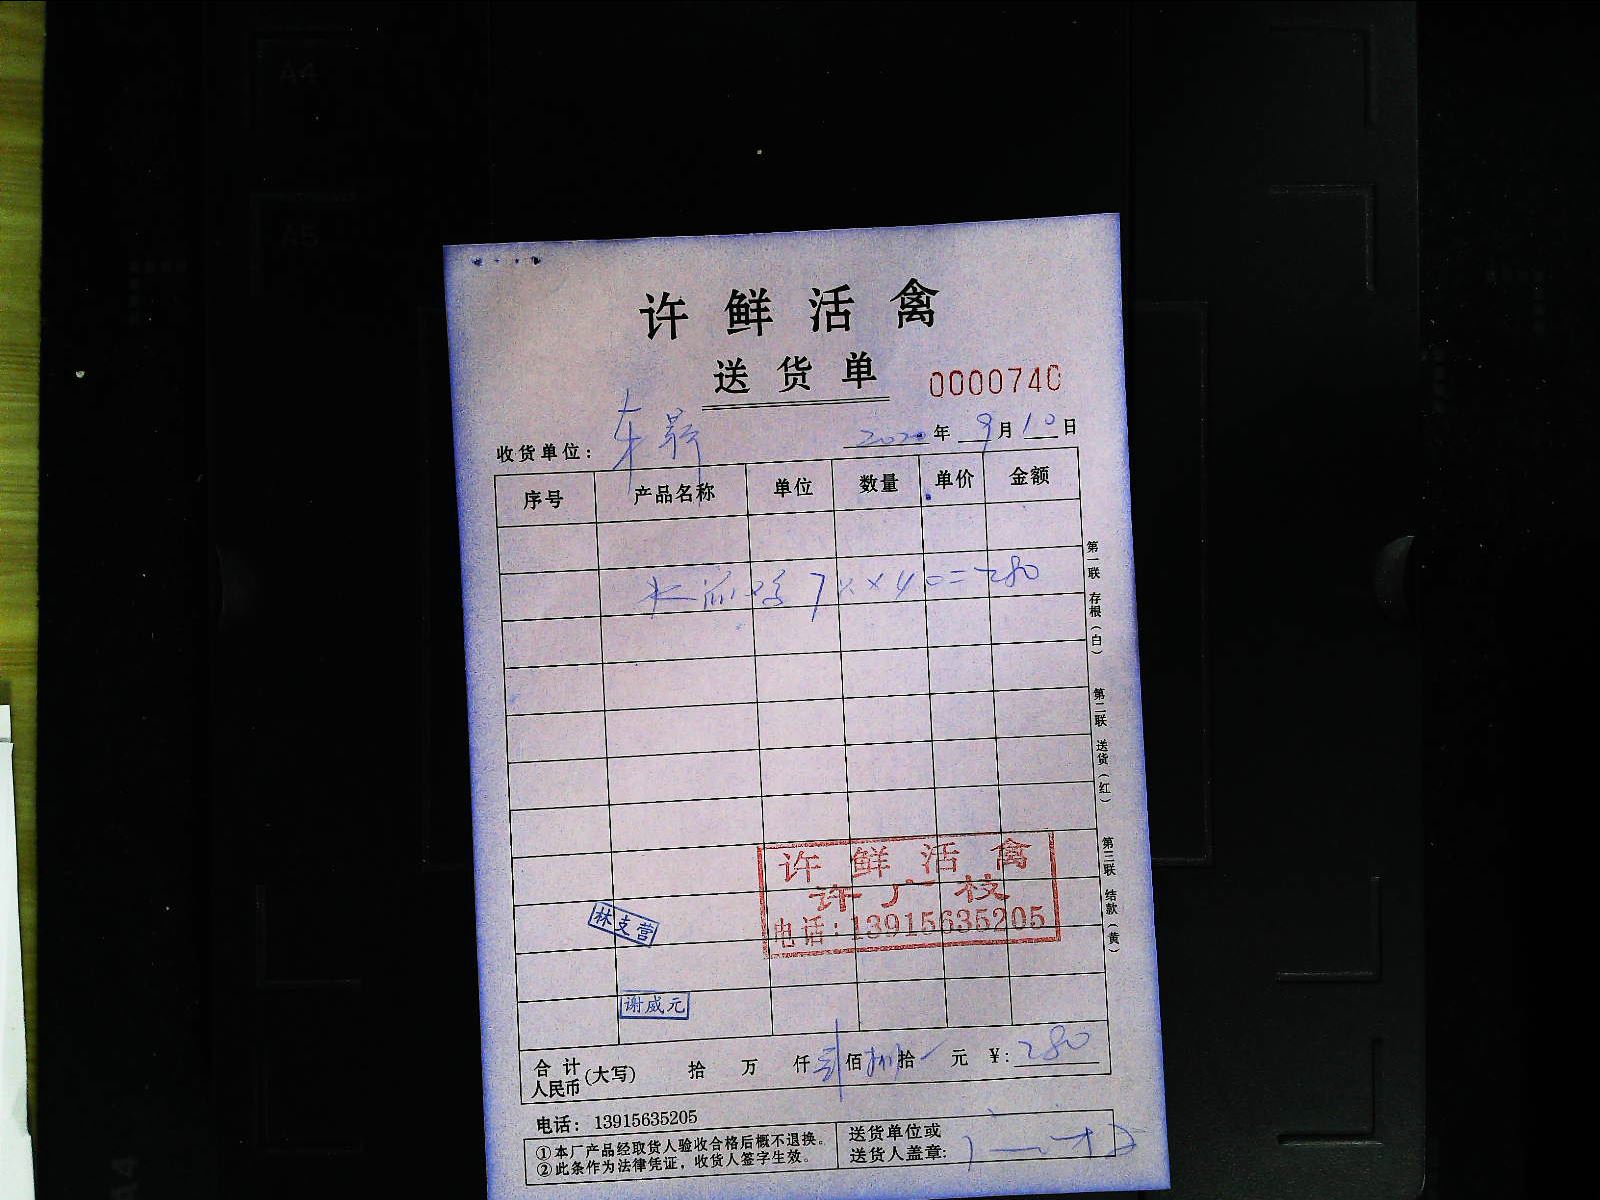 许鲜活禽
送货单
0000740
收货单位：
2020年 9月10日
序号 产品名称 单位 数量 单价 金额
7 × 40=280
第一联 存根（白）
第二联 送货（红）
第三联 结款（黄）
许鲜活禽
许广枝
电话:13915635205
林支营
谢威元
合计人民币(大写) 拾 万 仟 贰佰捌拾 元 ¥: 280
电话: 13915635205
①本厂产品经取货人验收合格后概不退换。
②此条作为法律凭证，收货人签字生效。
送货单位或
送货人盖章:
A4
A5
A4